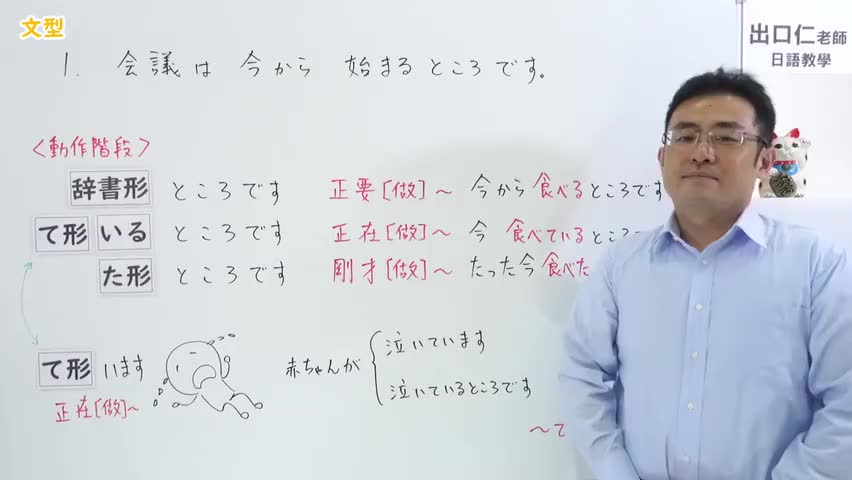 文型
出口仁老師
日語教學
1. 会議は 今から 始まるところです。
<動作階段>
辞書形 ところです 正要[做]～ 今から食べるところです
て形 いる ところです 正在[做]～ 今 食べているところ
た形 ところです 剛才[做]～ たった今食べた
て形 います
正在[做]～
赤ちゃんが
泣いています
泣いているところです
～て